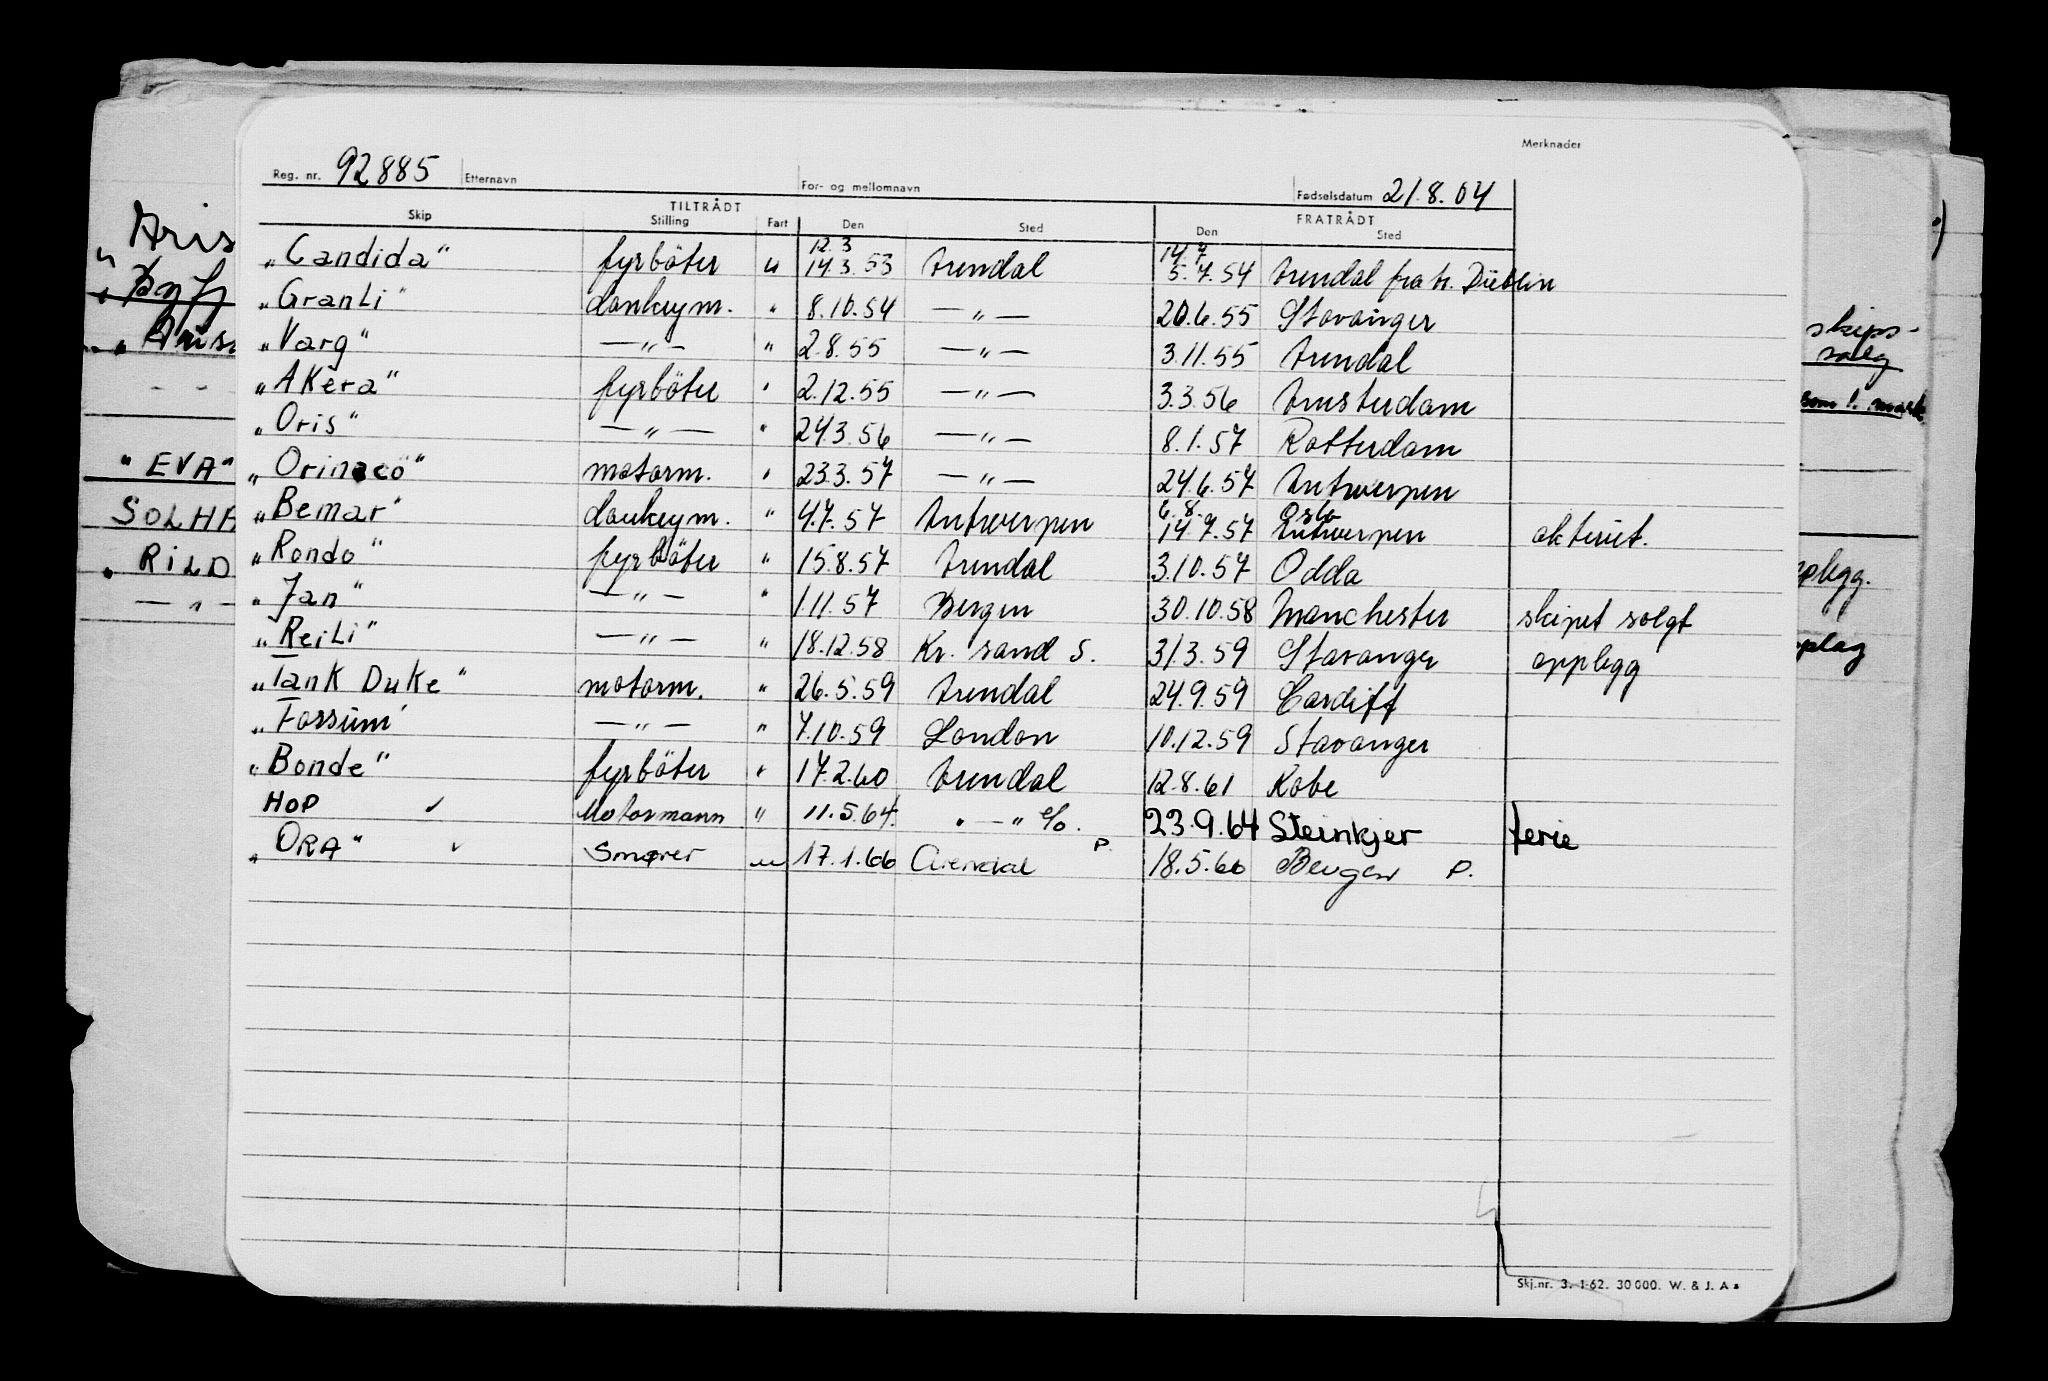 Merknader
Reg. nr. 92885 Etternavn For- og mellomnavn Fødselsdatum 21.8.04
TILTRÅDT FRATRÅDT
Skip Stilling Fart Den Sted Den Sted
12.3 14.7
„Candida" fyrböter u 14.3.53 Arendal 5.7.54 Arendal fratr. Dublin
„Granli" donkeym. " 8.10.54 — " — 20.6.55 Stavanger
„Varg" — " — " 2.8.55 — " — 3.11.55 Arendal
„Akera" fyrböter " 2.12.55 — " — 3.3.56 Amsterdam
„Oris" — " — " 24.3.56 — " — 8.1.57 Rotterdam
„Orinoco" motorm. " 23.3.57 — " — 24.6.57 Antwerpen
6.8. Oslo
„Bemar" donkeym. " 4.7.57 Antwerpen 14.7.57 Antwerpen akterut.
„Rondo" fyrböter " 15.8.57 Arendal 3.10.57 Odda
„Jan" — " — " 1.11.57 Bergen 30.10.58 Manchester skipet solgt
„Reili" — " — " 18.12.58 Kr. sand S. 31.3.59 Stavanger opplegg
„Tank Duke" motorm. " 26.5.59 Arendal 24.9.59 Cardiff
„Fossum" — " — " 7.10.59 London 10.12.59 Stavanger
„Bonde" fyrböter " 17.2.60 Arendal 12.8.61 Kobe
HOP ✓ Motormann " 11.5.64. " — " 23.9.64 Steinkjer ferie
„ORA" ✓ Smører u 17.1.66 Arendal P. 18.5.66 Bergen P.
Skj.nr. 3. 1-62. 30 000. W. & J. A s
Aris
"EVA"
SOLHA
„RILD
— " —
skips-
salg
som 1. mask
pplegg.
pplag